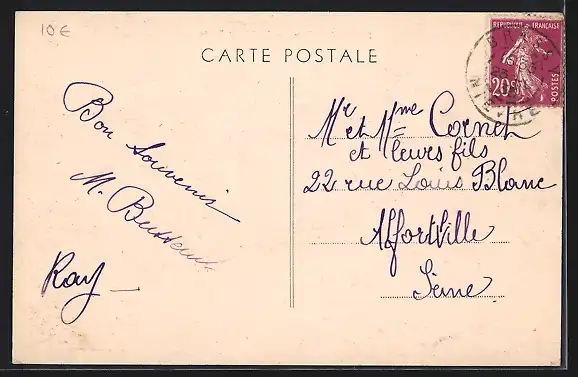 10€
CARTE POSTALE
Bon Souvenir
M.
Ray
REPUBLIQUE FRANÇAISE
20c
POSTES
Mr et Mme Cornet
et leurs fils
22 rue Louis Blanc
Alfortville
Seine